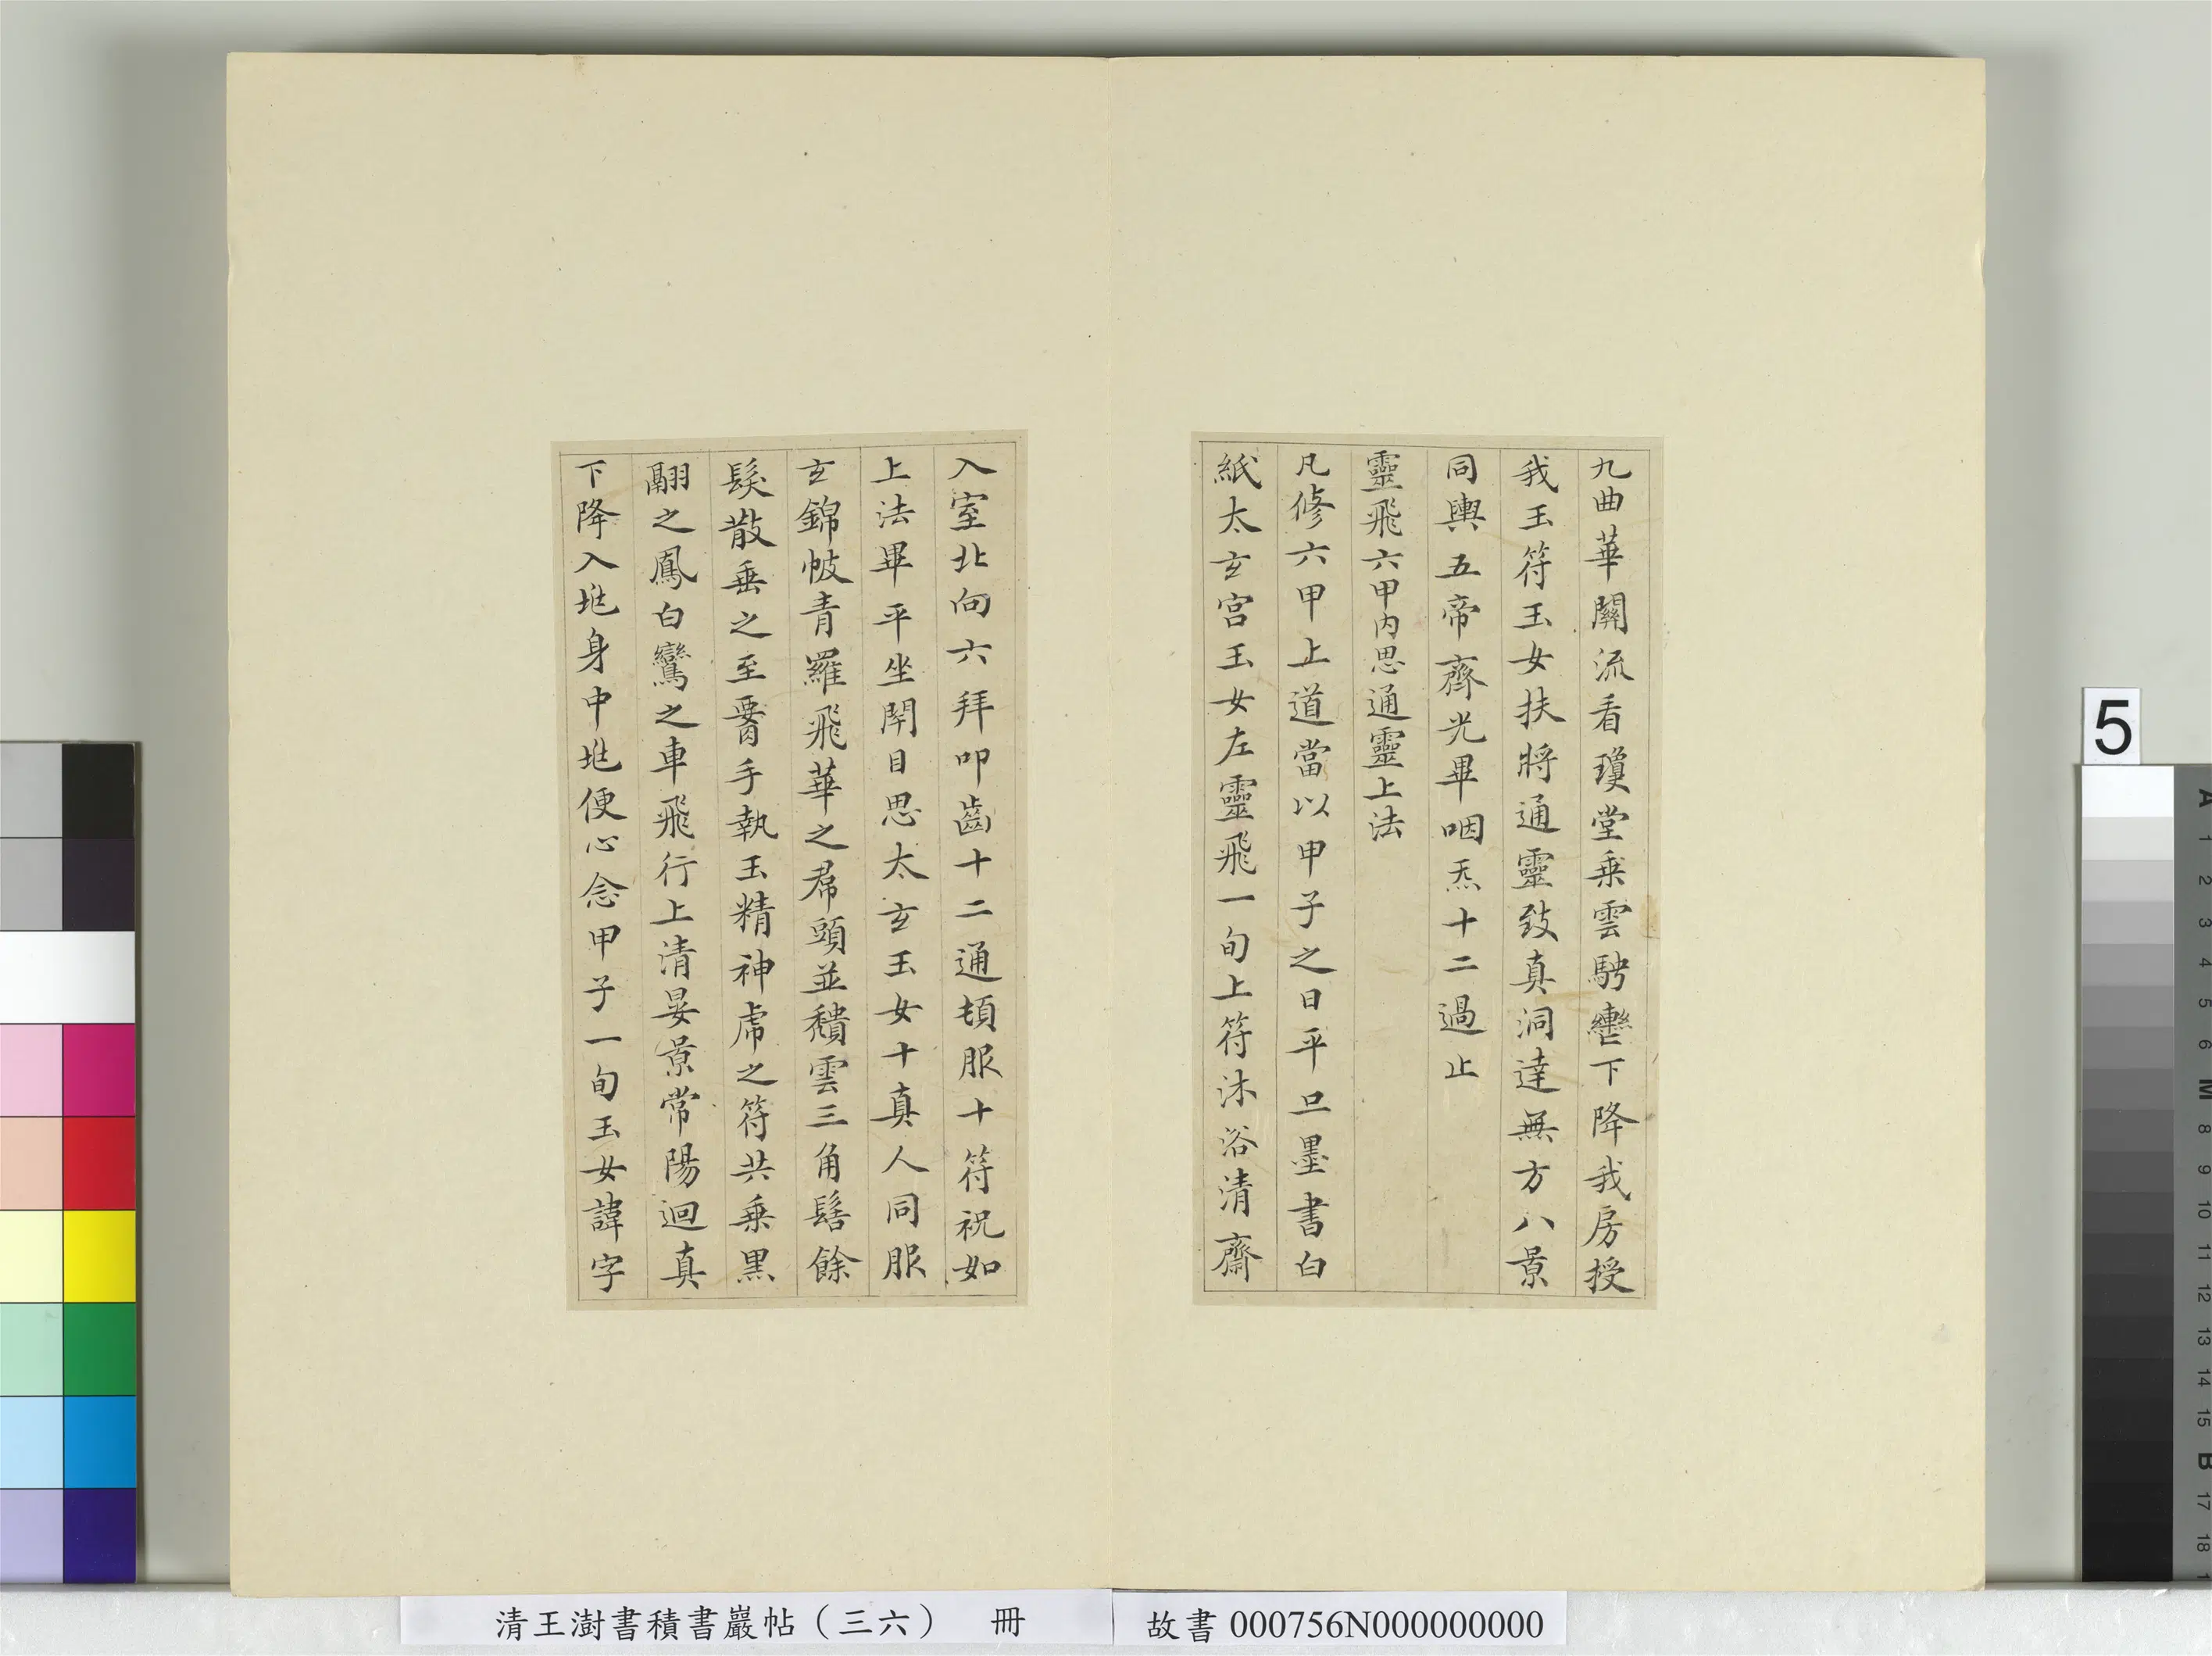 九曲華關流看瓊堂乘雲騁轡下降我房授
我玉符玉女扶將通靈致真洞達無方八景
同輿五帝齊光畢咽炁十二過止
靈飛六甲內思通靈上法
凡修六甲上道當以甲子之日平旦墨書白
紙太玄宮玉女左靈飛一旬上符沐浴清齋
入室北向六拜叩齒十二通頓服十符祝如
上法畢平坐閉目思太玄玉女十真人同服
玄錦帔青羅飛華之帬頭並穨雲三角髻餘
髮散垂之至署手執玉精神虎之符共乘黑
翮之鳳白鸞之車飛行上清晏景常陽迴真
下降入𡉏身中𡉏便心念甲子一旬玉女諱字
清王澍書積書巖帖（三六） 冊
故書 000756N000000000
5
A
1
2
3
4
5
6
M
8
9
10
11
12
13
14
15
B
17
18